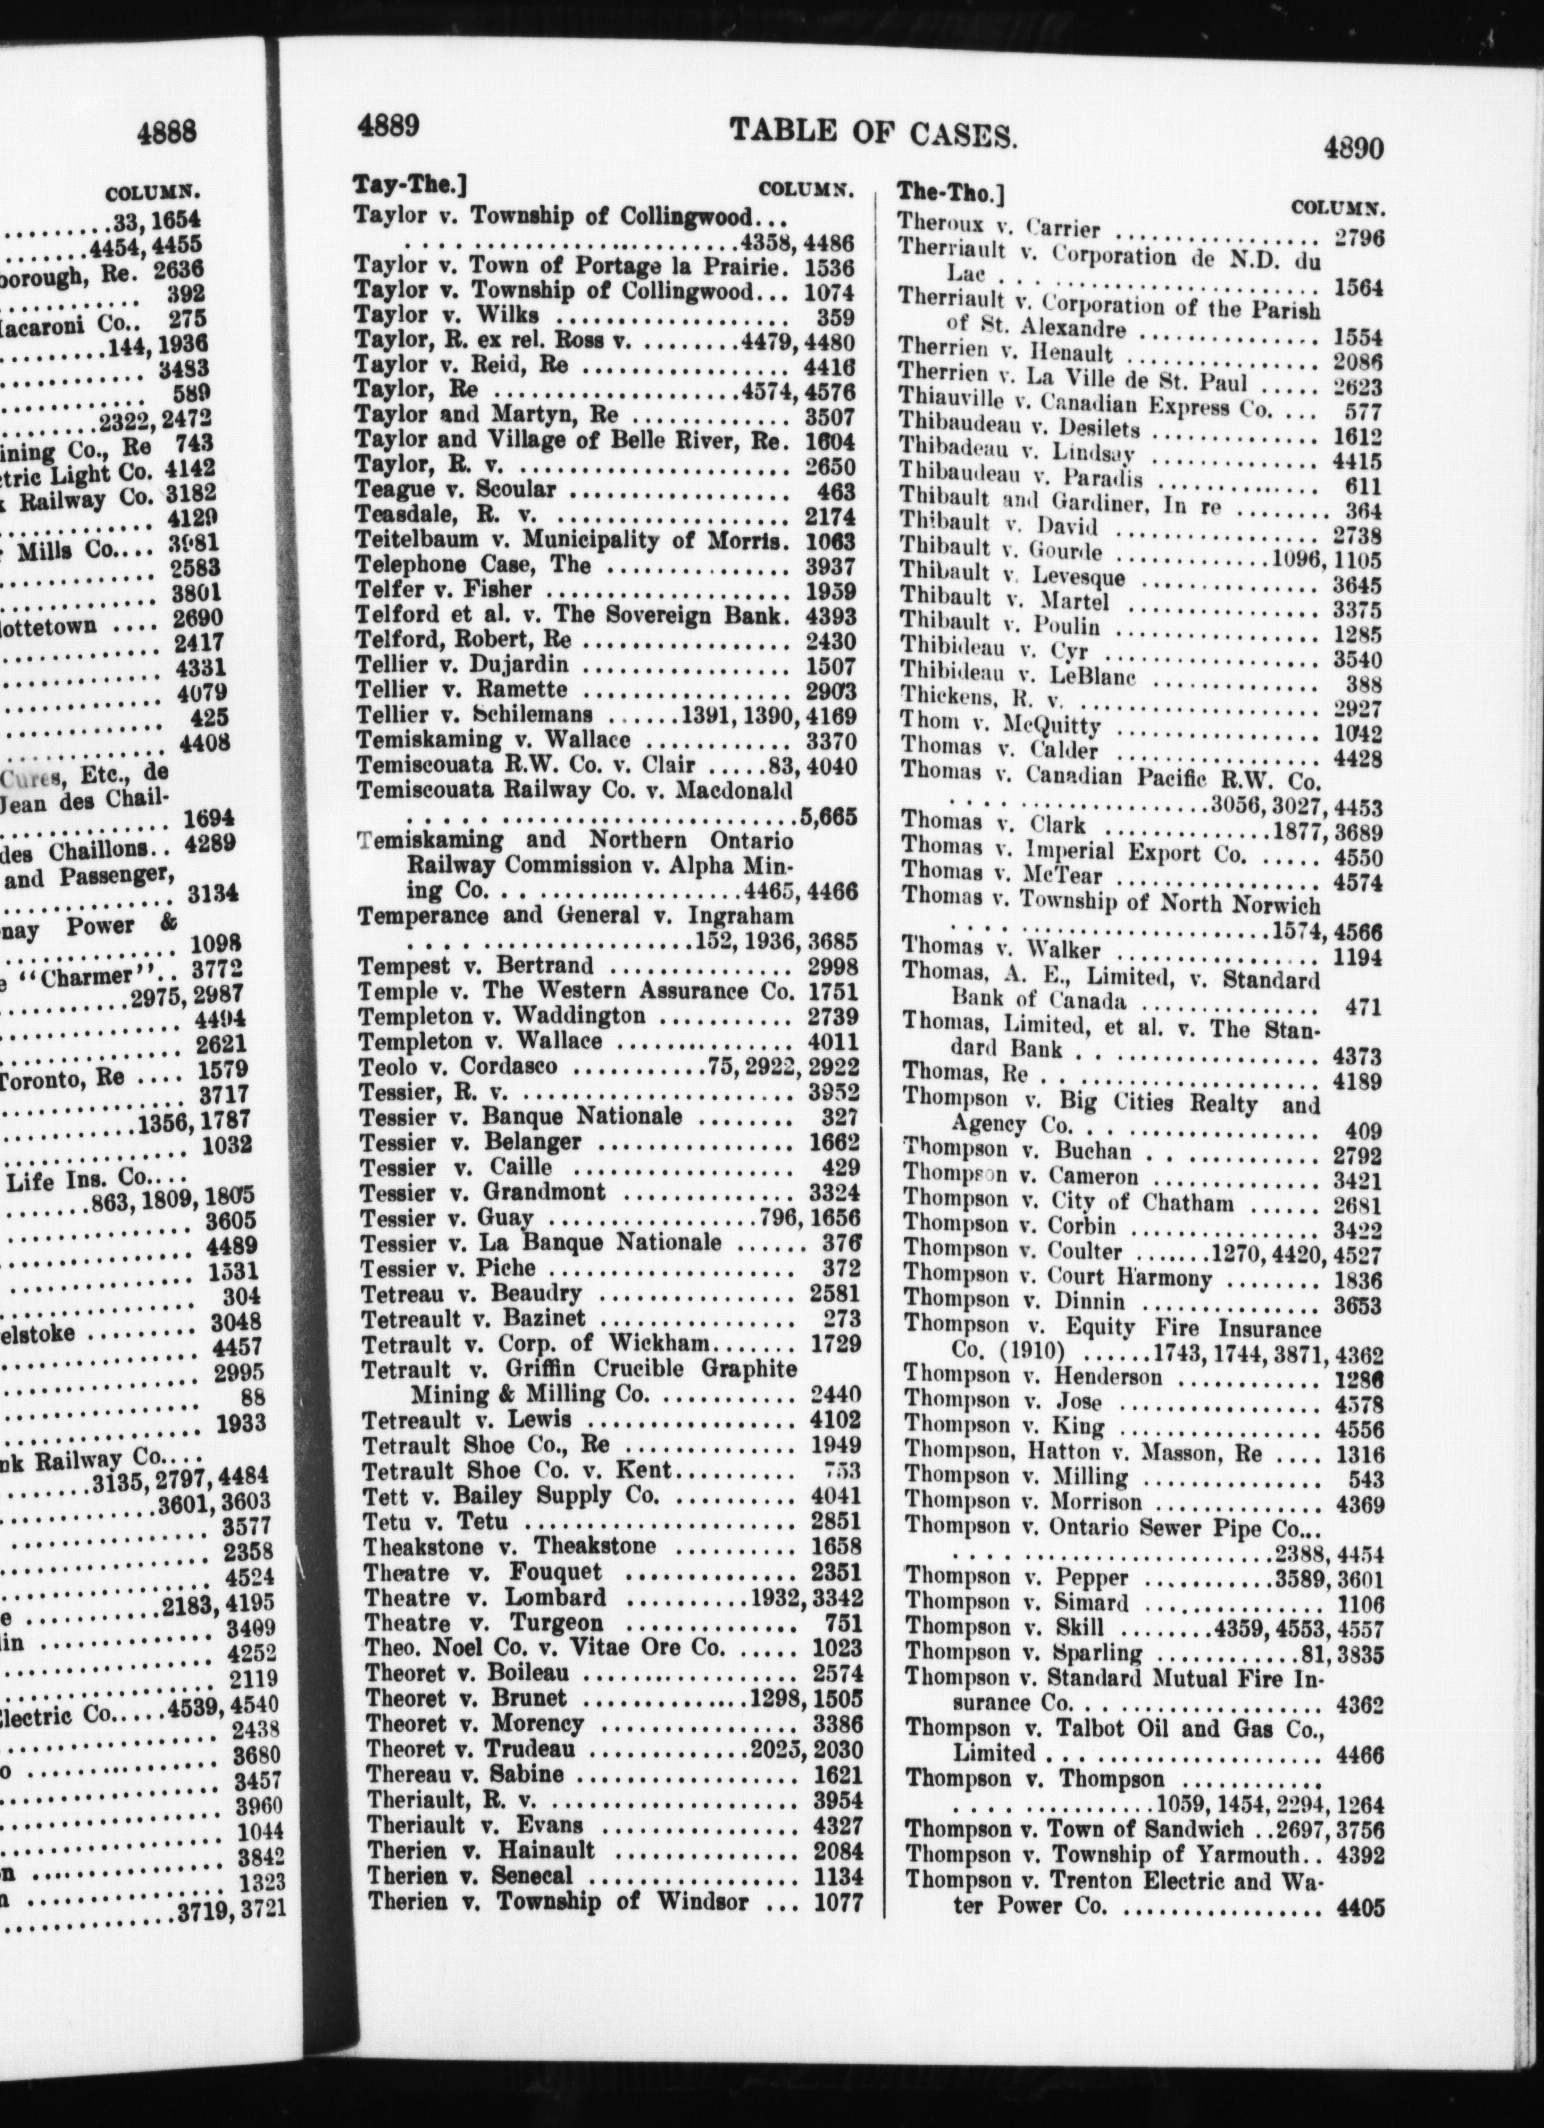 4888
COLUMN.
.........33, 1654
........4454, 4455
borough, Re. 2636
............ 392
Macaroni Co.. 275
.........144, 1936
............ 3483
............ 589
.........2322, 2472
ining Co., Re 743
ctric Light Co. 4142
k Railway Co. 3182
............ 4129
r Mills Co.... 3981
............ 2583
............ 3801
lottetown .... 2690
............ 2417
............ 4331
............ 4079
............ 425
............ 4408
Cures, Etc., de
Jean des Chail-
............ 1694
des Chaillons.. 4289
and Passenger,
............ 3134
nay Power &
............ 1098
e "Charmer".. 3772
...........2975, 2987
............ 4494
............ 2621
Toronto, Re .... 1579
............ 3717
...........1356, 1787
............ 1032
Life Ins. Co....
.......863, 1809, 1805
............ 3605
............ 4489
............ 1531
............ 304
elstoke ......... 3048
............ 4457
............ 2995
............ 88
............ 1933
nk Railway Co....
........3135, 2797, 4484
............3601, 3603
............ 3577
............ 2358
............ 4524
e ...........2183, 4195
lin ............ 3409
............ 4252
............ 2119
Electric Co.....4539, 4540
............ 2438
o ............ 3680
............ 3457
............ 3960
............ 1044
n ............ 3842
n ............ 1323
............3719, 3721
4889 TABLE OF CASES. 4890
Tay-The.] COLUMN.
Taylor v. Township of Collingwood...
............4358, 4486
Taylor v. Town of Portage la Prairie. 1536
Taylor v. Township of Collingwood... 1074
Taylor v. Wilks ............ 359
Taylor, R. ex rel. Ross v. .........4479, 4480
Taylor v. Reid, Re ............ 4416
Taylor, Re ............4574, 4576
Taylor and Martyn, Re ............ 3507
Taylor and Village of Belle River, Re. 1604
Taylor, R. v. ............ 2650
Teague v. Scoular ............ 463
Teasdale, R. v. ............ 2174
Teitelbaum v. Municipality of Morris. 1063
Telephone Case, The ............ 3937
Telfer v. Fisher ............ 1959
Telford et al. v. The Sovereign Bank. 4393
Telford, Robert, Re ............ 2430
Tellier v. Dujardin ............ 1507
Tellier v. Ramette ............ 2903
Tellier v. Schilemans ......1391, 1390, 4169
Temiskaming v. Wallace ............ 3370
Temiscouata R.W. Co. v. Clair .....83, 4040
Temiscouata Railway Co. v. Macdonald
............5,665
Temiskaming and Northern Ontario
Railway Commission v. Alpha Min-
ing Co. ............4465, 4466
Temperance and General v. Ingraham
............152, 1936, 3685
Tempest v. Bertrand ............ 2998
Temple v. The Western Assurance Co. 1751
Templeton v. Waddington ........... 2739
Templeton v. Wallace ............ 4011
Teolo v. Cordasco ...........75, 2922, 2922
Tessier, R. v. ............ 3952
Tessier v. Banque Nationale ........ 327
Tessier v. Belanger ............ 1662
Tessier v. Caille ............ 429
Tessier v. Grandmont ............ 3324
Tessier v. Guay ............796, 1656
Tessier v. La Banque Nationale ...... 376
Tessier v. Piche ............ 372
Tetreau v. Beaudry ............ 2581
Tetreault v. Bazinet ............ 273
Tetrault v. Corp. of Wickham....... 1729
Tetrault v. Griffin Crucible Graphite
Mining & Milling Co. .......... 2440
Tetreault v. Lewis ............ 4102
Tetrault Shoe Co., Re ............ 1949
Tetrault Shoe Co. v. Kent.......... 753
Tett v. Bailey Supply Co. .......... 4041
Tetu v. Tetu ............ 2851
Theakstone v. Theakstone .......... 1658
Theatre v. Fouquet ............ 2351
Theatre v. Lombard ..........1932, 3342
Theatre v. Turgeon ............ 751
Theo. Noel Co. v. Vitae Ore Co. ..... 1023
Theoret v. Boileau ............ 2574
Theoret v. Brunet ............1298, 1505
Theoret v. Morency ............ 3386
Theoret v. Trudeau ............2025, 2030
Thereau v. Sabine ............ 1621
Theriault, R. v. ............ 3954
Theriault v. Evans ............ 4327
Therien v. Hainault ............ 2084
Therien v. Senecal ............ 1134
Therien v. Township of Windsor ... 1077
The-Tho.] COLUMN.
Theroux v. Carrier ............ 2796
Therriault v. Corporation de N.D. du
Lac ............ 1564
Therriault v. Corporation of the Parish
of St. Alexandre ............ 1554
Therrien v. Henault ............ 2086
Therrien v. La Ville de St. Paul ..... 2623
Thiauville v. Canadian Express Co. ... 577
Thibaudeau v. Desilets ............ 1612
Thibadeau v. Lindsay ............ 4415
Thibaudeau v. Paradis ............ 611
Thibault and Gardiner, In re ........ 364
Thibault v. David ............ 2738
Thibault v. Gourde ............1096, 1105
Thibault v. Levesque ............ 3645
Thibault v. Martel ............ 3375
Thibault v. Poulin ............ 1285
Thibideau v. Cyr ............ 3540
Thibideau v. LeBlanc ............ 388
Thickens, R. v. ............ 2927
Thom v. McQuitty ............ 1042
Thomas v. Calder ............ 4428
Thomas v. Canadian Pacific R.W. Co.
............3056, 3027, 4453
Thomas v. Clark ............1877, 3689
Thomas v. Imperial Export Co. ..... 4550
Thomas v. McTear ............ 4574
Thomas v. Township of North Norwich
............1574, 4566
Thomas v. Walker ............ 1194
Thomas, A. E., Limited, v. Standard
Bank of Canada ............ 471
Thomas, Limited, et al. v. The Stan-
dard Bank ............ 4373
Thomas, Re ............ 4189
Thompson v. Big Cities Realty and
Agency Co. ............ 409
Thompson v. Buchan ............ 2792
Thompson v. Cameron ............ 3421
Thompson v. City of Chatham ...... 2681
Thompson v. Corbin ............ 3422
Thompson v. Coulter .......1270, 4420, 4527
Thompson v. Court Harmony ........ 1836
Thompson v. Dinnin ............ 3653
Thompson v. Equity Fire Insurance
Co. (1910) ......1743, 1744, 3871, 4362
Thompson v. Henderson ............ 1286
Thompson v. Jose ............ 4578
Thompson v. King ............ 4556
Thompson, Hatton v. Masson, Re .... 1316
Thompson v. Milling ............ 543
Thompson v. Morrison ............ 4369
Thompson v. Ontario Sewer Pipe Co...
............2388, 4454
Thompson v. Pepper ...........3589, 3601
Thompson v. Simard ............ 1106
Thompson v. Skill ........4359, 4553, 4557
Thompson v. Sparling ............81, 3835
Thompson v. Standard Mutual Fire In-
surance Co. ............ 4362
Thompson v. Talbot Oil and Gas Co.,
Limited ............ 4466
Thompson v. Thompson ............
............1059, 1454, 2294, 1264
Thompson v. Town of Sandwich ..2697, 3756
Thompson v. Township of Yarmouth.. 4392
Thompson v. Trenton Electric and Wa-
ter Power Co. ............ 4405